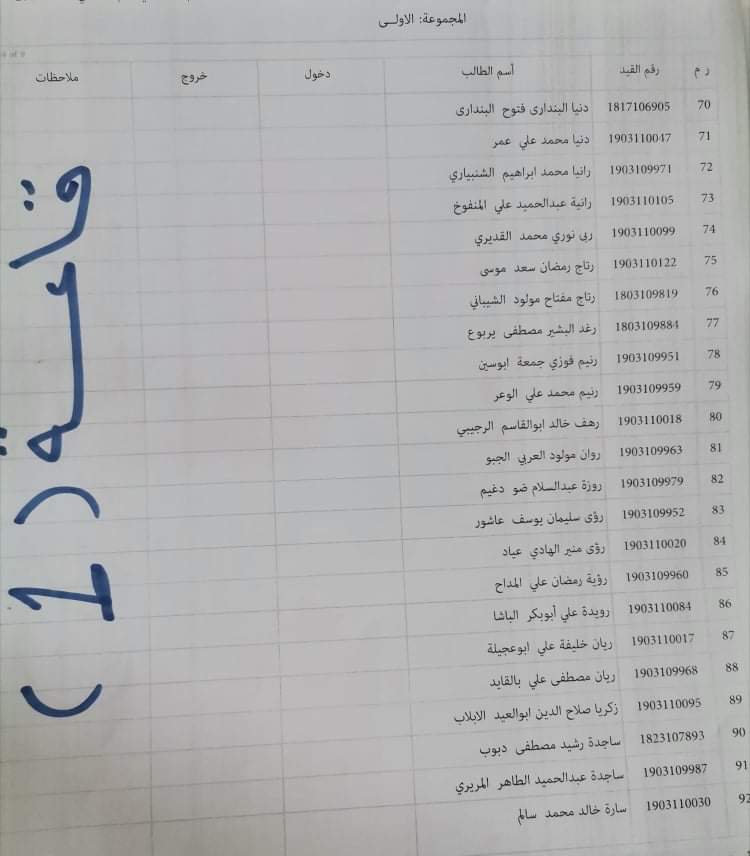 المجموعة: الاولى
ر م رقم القيد أسم الطالب دخول خروج ملاحظات
70 1817106905 دنيا البندارى فتوح البندارى
71 1903110047 دنيا محمد علي عمر
72 1903109971 رانيا محمد ابراهيم الشنبياري
73 1903110105 رانية عبدالحميد علي المنفوخ
74 1903110099 ربى نوري محمد القديري
75 1903110122 رتاج رمضان سعد موسى
76 1803109819 رتاج مفتاح مولود الشيباني
77 1803109884 رغد البشير مصطفى يربوع
78 1903109951 رنيم فوزي جمعة ابوسين
79 1903109959 رنيم محمد علي الوعر
80 1903110018 رهف خالد ابوالقاسم الرجيبي
81 1903109963 روان مولود العربي الجبو
82 1903109979 روزة عبدالسلام ضو دغيم
83 1903109952 رؤى سليمان يوسف عاشور
84 1903110020 رؤى منير الهادي عياد
85 1903109960 رؤية رمضان علي المداح
86 1903110084 رويدة علي أبوبكر الباشا
87 1903110017 ريان خليفة علي ابوعجيلة
88 1903109968 ريان مصطفى علي بالقايد
89 1903110095 زكريا صلاح الدين ابوالعيد الابلاب
90 1823107893 ساجدة رشيد مصطفى دبوب
91 1903109987 ساجدة عبدالحميد الطاهر المريري
92 1903110030 سارة خالد محمد سالم
قاعة (1)